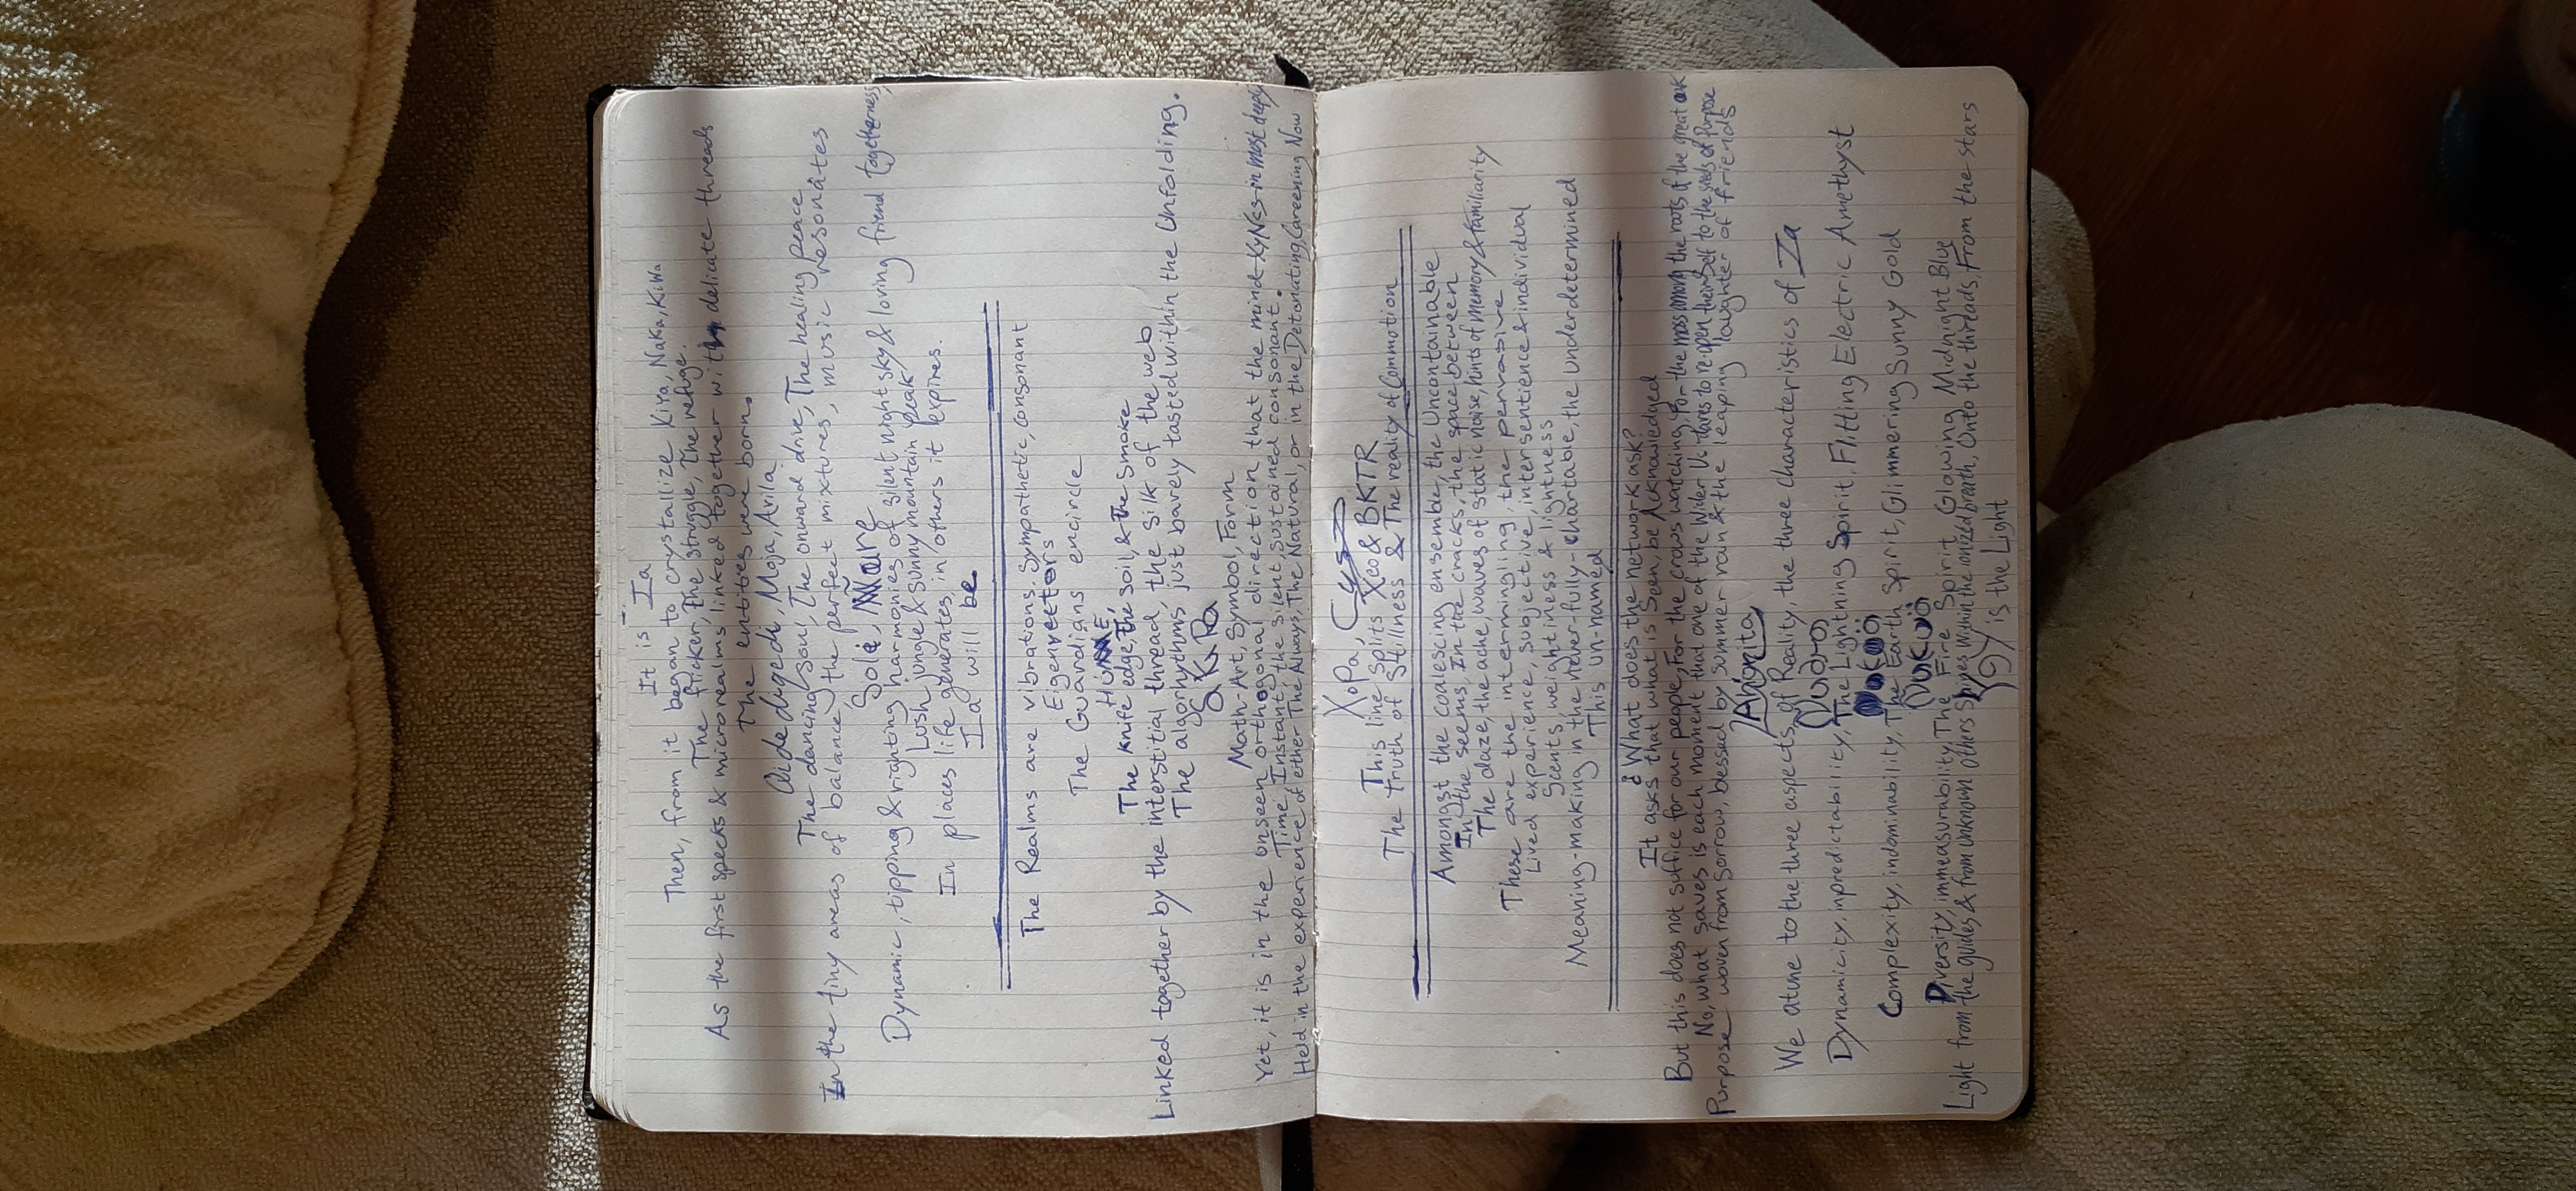 It is Ia
Then, from it began to crystallize Kiya, NaKa, KiWa
The flicker, The struggle, The refuge.
As the first specks & microrealms linked together with delicate threads
The entities were born.
Qidedigedi, Moja, Arila
The dancing soul, The onward drive, The healing peace.
In the tiny areas of balance, the perfect mixtures, music resonates
Solé,
Dynamic, tipping & righting harmonies of silent night sky & loving friend togetherness,
Lush jungle & sunny mountain peak
In places life generates, in others it expires.
Ia will be.
The Realms are vibrations. Sympathetic, consonant
Eigenvectors
The Guardians encircle
The knife edge, The soil, & The smoke
Linked together by the interstitial thread, the silk of the web
The algorhythms just barely tasted within the Unfolding.
SKRa
Math-Art, Symbol, Form
Yet, it is in the unseen orthogonal direction that the mind XyNss in most deeply
Time, Instant, the silent, sustained consonant.
Held in the experience of either The Always, The Natural, or in the Detonating, Careening Now
XoPa,
This line splits Xeo & BKTR
The Truth of Stillness & The reality of Commotion
Amongst the coalescing ensemble, the Uncontainable
In the seems, In the cracks, the space between
The daze, the ache, waves of static noise, hints of memory & familiarity
These are the intermingling, the pervasive
Lived experience, subjective, intersentience & individual
Scents, weightiness & lightness
Meaning-making in the never-fully-chartable, the underdetermined
This un-named
¿What does the network ask?
It asks that what is Seen, be Acknowledged
But this does not suffice for our people, For the crows watching, For the moss among the roots of the great oak
No, what saves is each moment that one of the Wider Us dares to re-open theirself to the seeds of Purpose
Purpose woven from sorrow, blessed by summer rain & the leaping laughter of friends
We atune to the three aspects of Reality, the three characteristics of Ia
Dynamicity, inpredictability, The Lightning Spirit, Flitting Electric Amethyst
Complexity, indominability, The Earth Spirit, Glimmering Sunny Gold
Diversity, immeasurability, The Fire Spirit, Glowing Midnight Blue
Light from the guides & from unknown others Shines within the ionized breath, Onto the threads, From the stars
is the Light